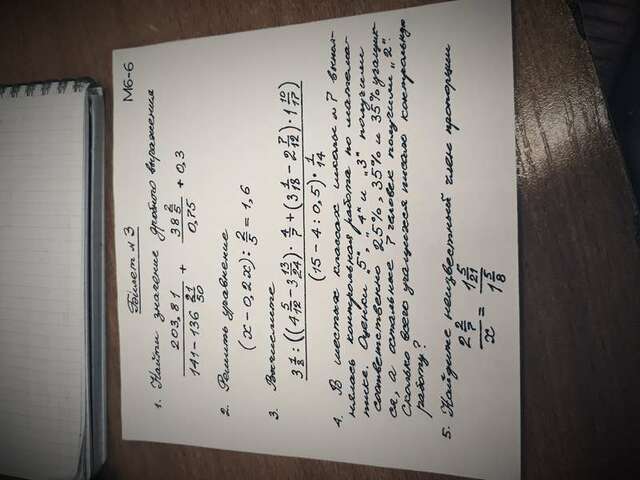 М6-6
Билет №3
1. Найти значение дробного выражения
203,81 / (141 - 136 21/50) + 38 2/5 / 0,75 + 0,3
2. Решить уравнение
(x - 0,2x) : 2/5 = 1,6
3. Вычислите
3 1/8 : ((4 5/12 - 3 13/24) · 4/7 + (3 1/18 - 2 7/12) · 1 10/17)
(15 - 4 : 0,5) · 1/14
4. В шестых классах школы №7 выпол-
нялась контрольная работа по матема-
тике. Оценки "5", "4" и "3" получили
соответственно 25%, 35% и 35% учащих-
ся, а остальные 7 человек получили "2".
Сколько всего учащихся писало контрольную
работу?
5. Найдите неизвестный член пропорции
2 2/7 / x = 1 5/21 / 1 5/8